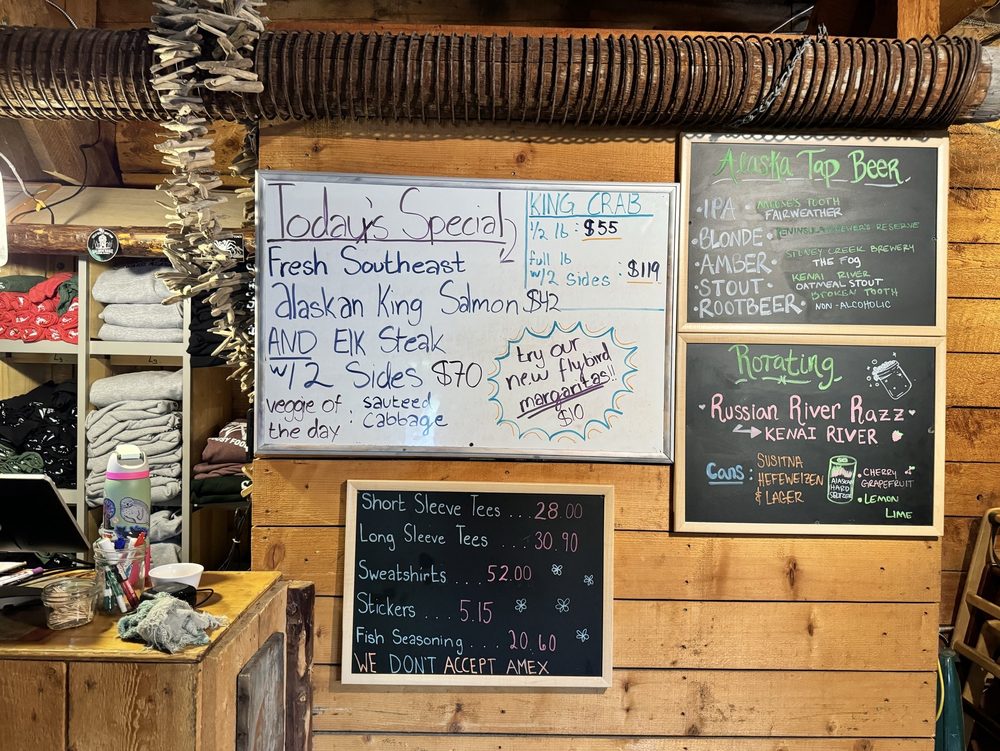 Today's Special
Fresh Southeast
Alaskan King Salmon $42
AND Elk Steak
w/2 Sides $70
veggie of the day : sauteed cabbage
KING CRAB
1/2 lb : $55
full lb
w/2 Sides : $119
try our
new flybird
margaritas!!
$10
Alaska Tap Beer
•IPA•
FAIRWEATHER
•BLONDE•
PENINSULA BREWER'S RESERVE
•AMBER•
BREWERY
THE FOG
•STOUT•
KENAI RIVER
OATMEAL STOUT
•ROOTBEER•
BROKEN TOOTH
NON-ALCOHOLIC
Rotating
Russian River Razz
KENAI RIVER
Cans: SUSITNA
HEFEWEIZEN
& LAGER
ALASKAN
HARD
SELTZER
•CHERRY
GRAPEFRUIT
•LEMON
LIME
Short Sleeve Tees ... 28.00
Long Sleeve Tees ... 30.90
Sweatshirts .... 52.00
Stickers .... 5.15
Fish Seasoning .... 20.60
WE DON'T ACCEPT AMEX